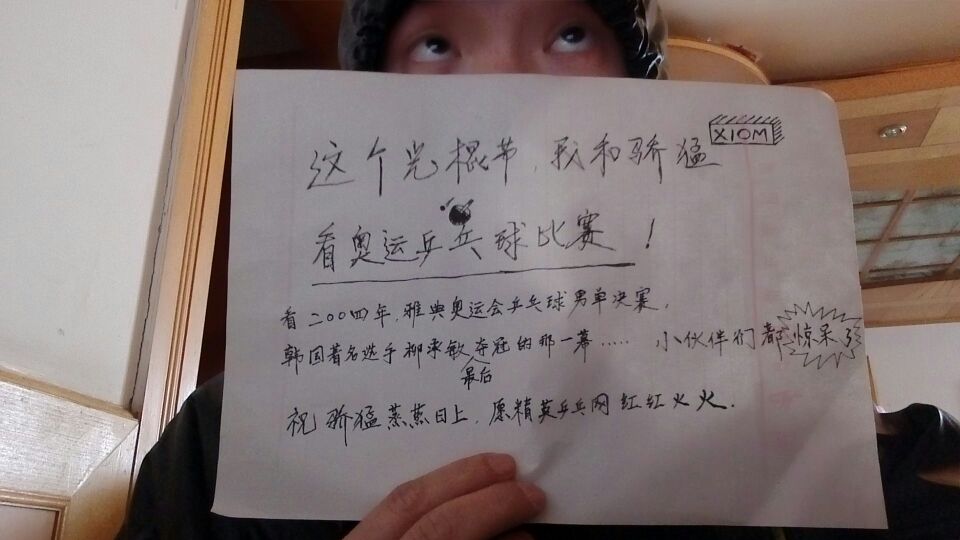 XIOM
这个光棍节，我和骄猛
看奥运乒乓球比赛！
看二〇〇四年，雅典奥运会乒乓球男单决赛，
韩国著名选手柳承敏最后夺冠的那一幕…… 小伙伴们都惊呆了
祝骄猛蒸蒸日上，愿精英乒乓网红红火火．